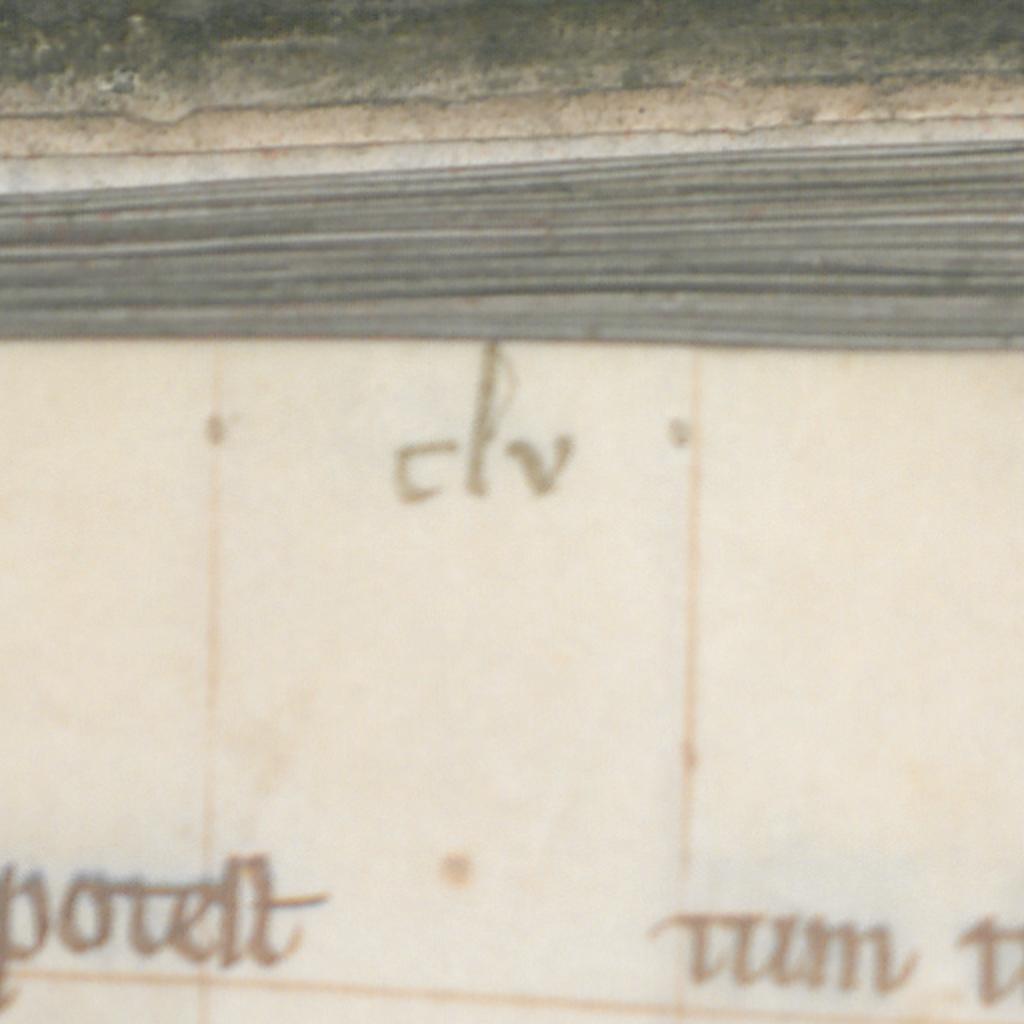 clv
potest
tum